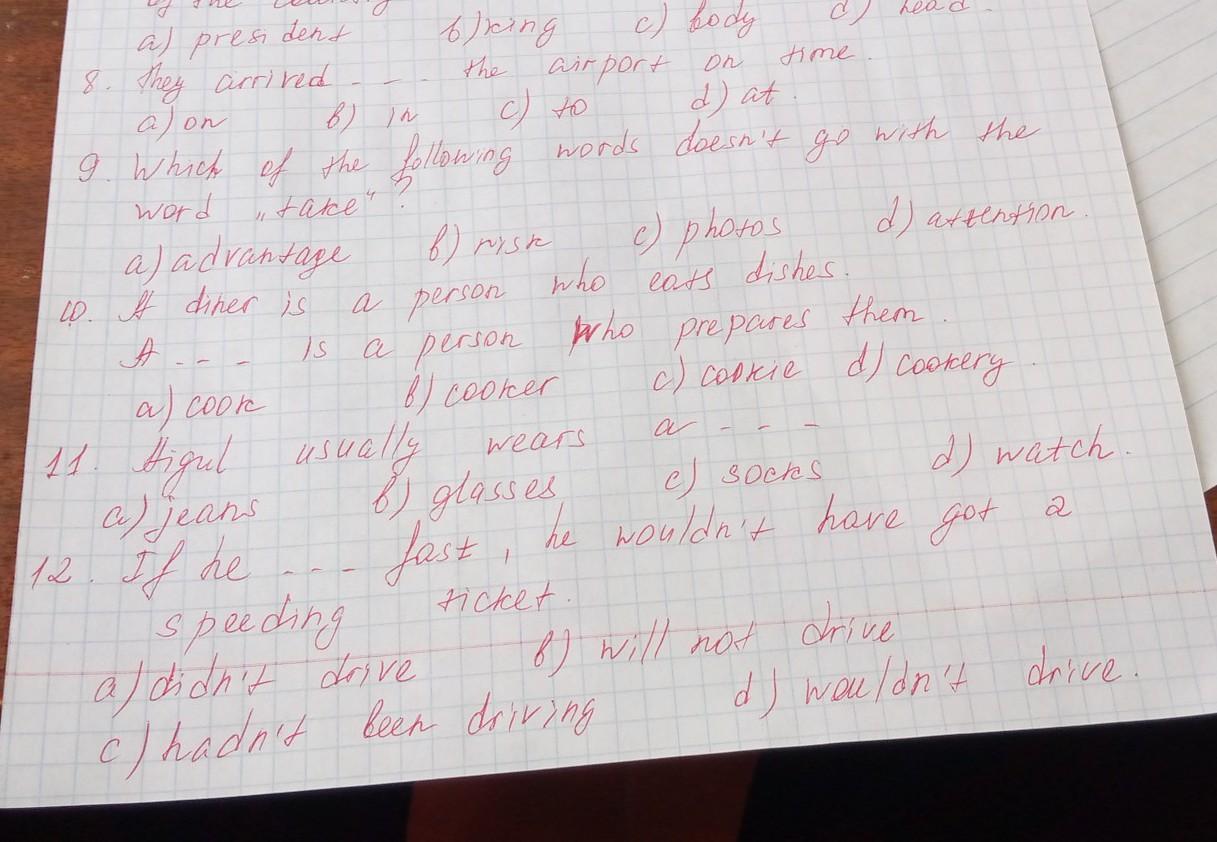 of the
a) president b) king c) body d) head
8. They arrived - - - the airport on time.
a) on b) in c) to d) at.
9. Which of the following words doesn't go with the
word „take“?
a) advantage b) risk c) photos d) attention.
10. A diner is a person who eats dishes.
A - - - is a person who prepares them.
a) cook b) cooker c) cookie d) cookery.
11. Aigul usually wears a - - -
a) jeans b) glasses c) socks d) watch.
12. If he - - - fast, he wouldn't have got a
speeding ticket.
a) didn't drive b) will not drive
c) hadn't been driving d) wouldn't drive.